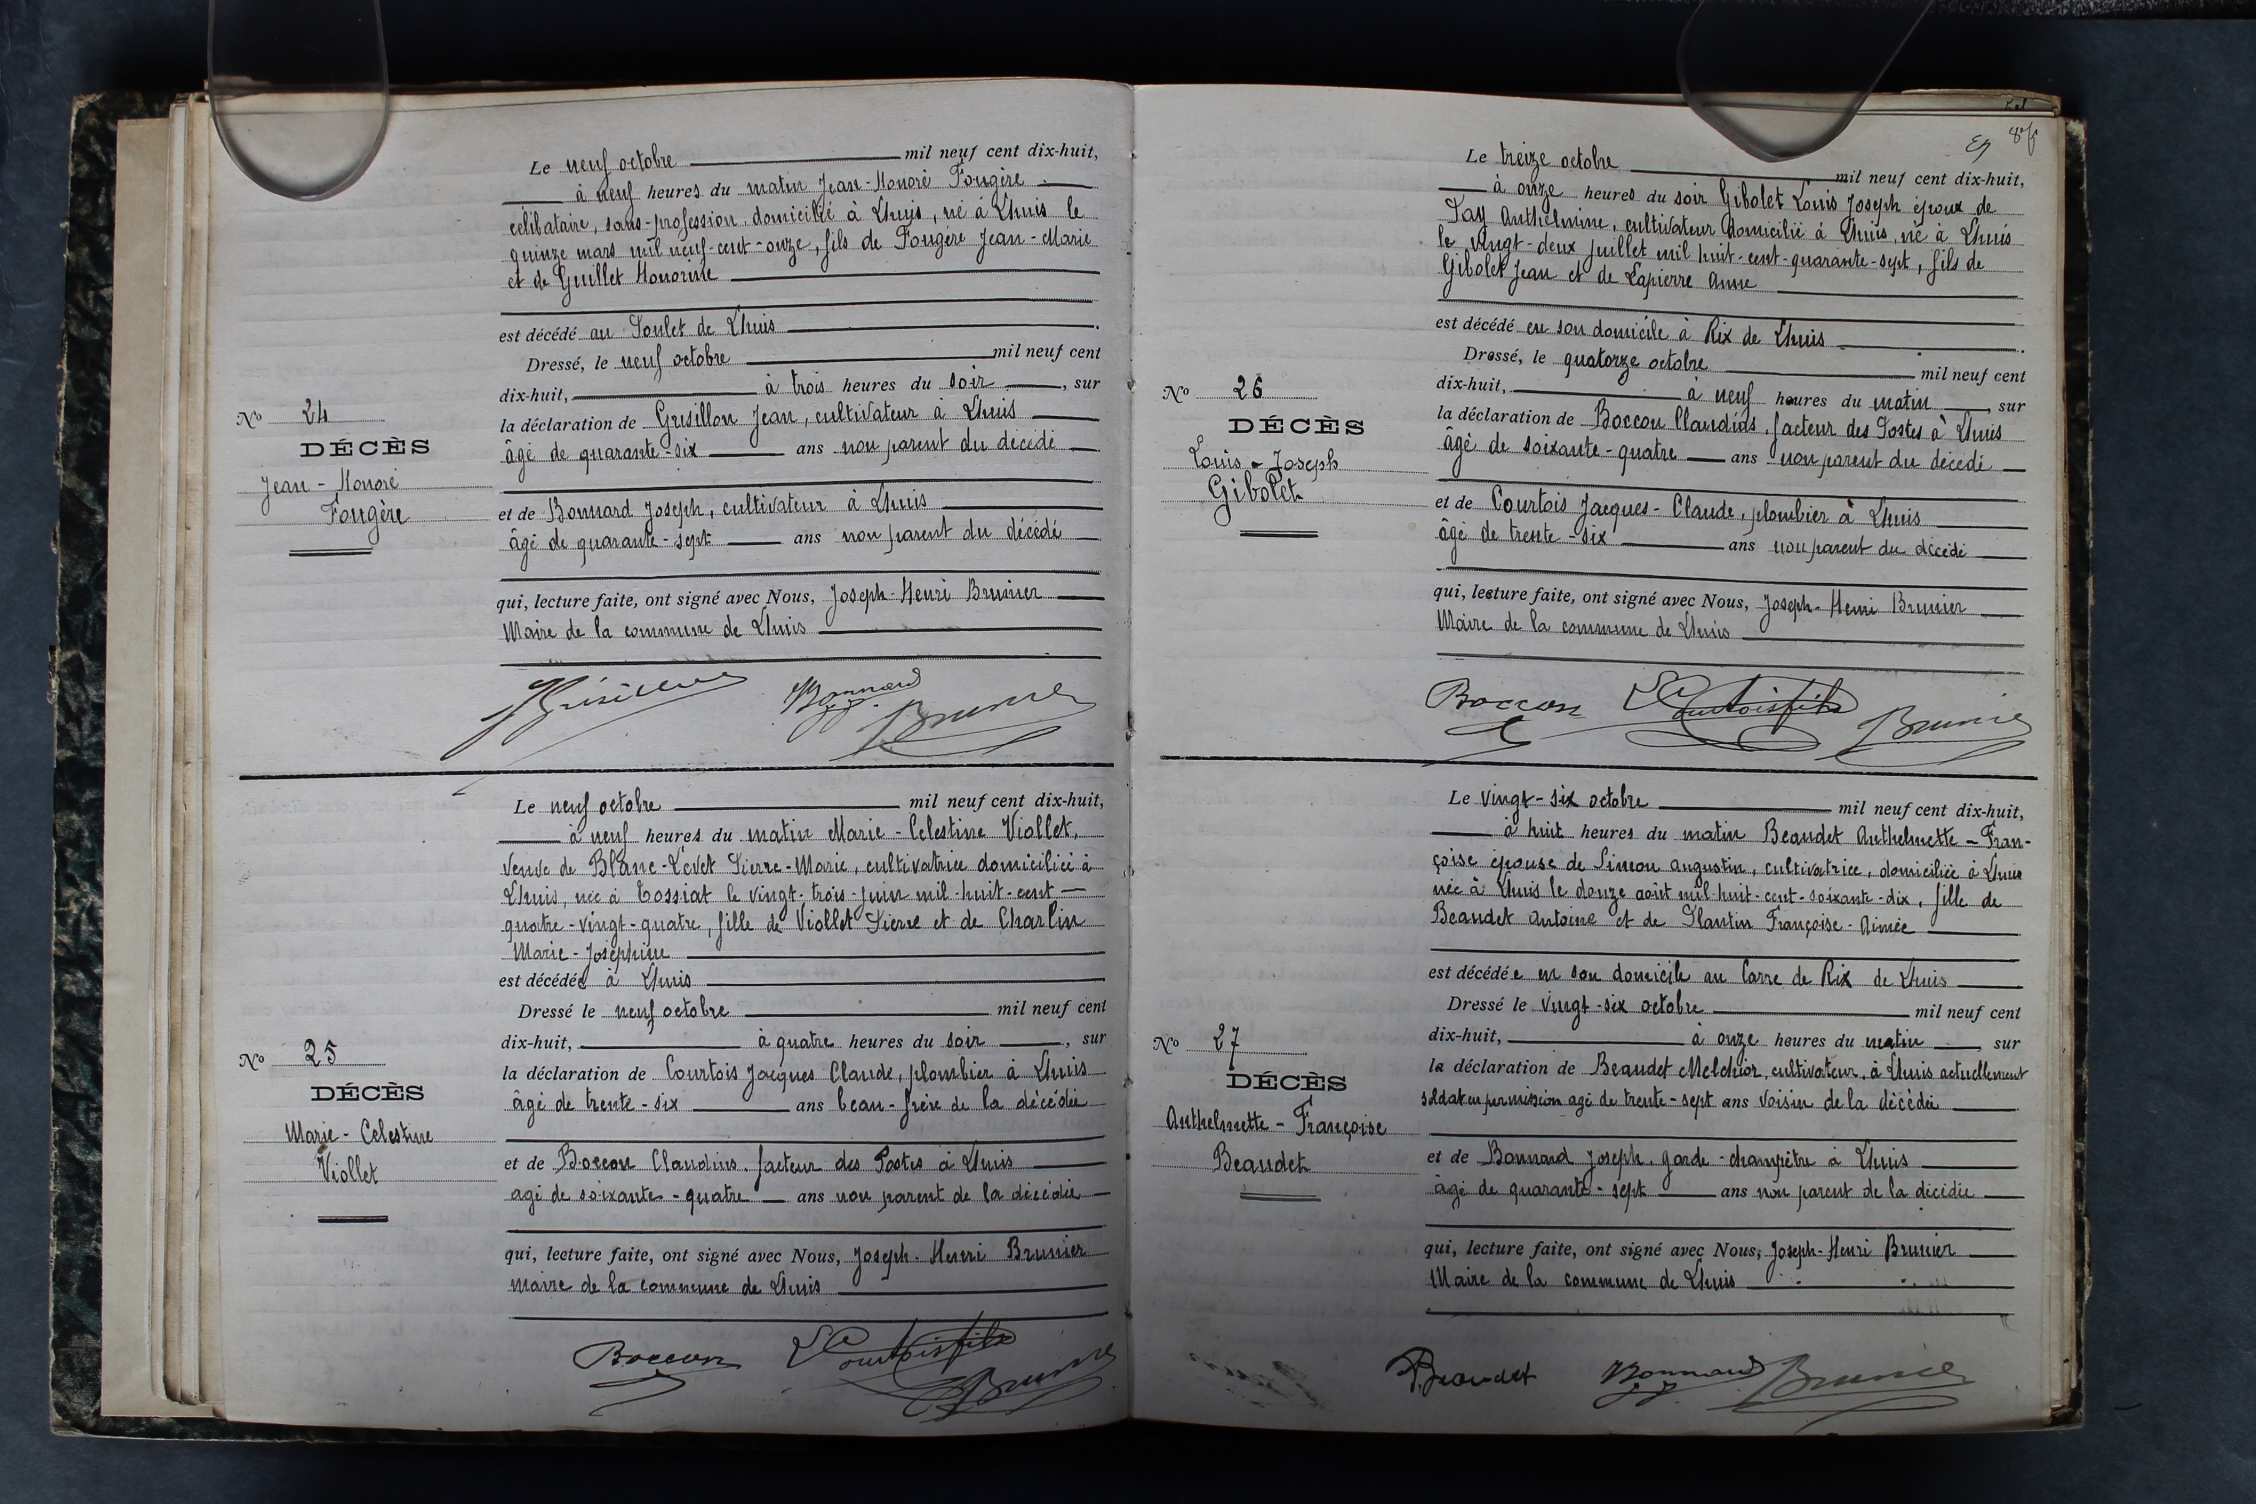 Le neuf octobre mil neuf cent dix-huit,
à neuf heures du matin Jean-Honoré Fougère
célibataire, sans-profession domicilié à Lhuis, né à Lhuis le
quinze mars mil neuf-cent-onze, fils de Fougère Jean-Marie
et de Guillet Honorine
est décédé au Poulet de Lhuis
Dressé, le neuf octobre mil neuf cent
dix-huit, à trois heures du soir, sur
la déclaration de Grisillon Jean, cultivateur à Lhuis
âgé de quarante-six ans non parent du décédé
et de Bonnard Joseph, cultivateur à Lhuis
âgé de quarante-sept ans non parent du décédé
qui, lecture faite, ont signé avec Nous, Joseph-Henri Brunier
Maire de la commune de Lhuis
No 24
DÉCÈS
Jean-Honoré
Fougère
Bonnard
Brunier
Le neuf octobre mil neuf cent dix-huit,
à neuf heures du matin Marie-Celestine Viollet,
veuve de Blanc-Levet Pierre-Marie, cultivatrice domiciliée à
Lhuis, née à Tossiat le vingt-trois juin mil-huit-cent-
quatre-vingt-quatre, fille de Viollet Pierre et de Charlin
Marie-Joséphine
est décédée à Lhuis
Dressé le neuf octobre mil neuf cent
dix-huit, à quatre heures du soir, sur
la déclaration de Courtois Jacques Claude, plombier à Lhuis
âgé de trente-six ans beau-frère de la décédée
et de Boccon Claudius, facteur des Postes à Lhuis
agé de soixante-quatre ans non parent de la décédée
qui, lecture faite, ont signé avec Nous, Joseph-Henri Brunier
maire de la commune de Lhuis
No 25
DÉCÈS
Marie-Celestine
Viollet
Boccon Courtois fils
Brunier
Le treize octobre mil neuf cent dix-huit,
à onze heures du soir Gibolet Louis Joseph époux de
Pay Anthelmine, cultivateur domicilié à Lhuis, né à Lhuis
le vingt-deux juillet mil huit-cent-quarante-sept, fils de
Gibolet Jean et de Lapierre Anne
est décédé en son domicile à Rix de Lhuis
Dressé, le quatorze octobre mil neuf cent
dix-huit, à neuf heures du matin, sur
la déclaration de Boccon Claudius, facteur des Postes à Lhuis
âgé de soixante-quatre ans non parent du décédé
et de Courtois Jacques-Claude, plombier à Lhuis
âgé de trente-six ans non parent du décédé
qui, lecture faite, ont signé avec Nous, Joseph-Henri Brunier
Maire de la commune de Lhuis
No 26
DÉCÈS
Louis-Joseph
Gibolet
Boccon Courtois fils Brunier
Le vingt-six octobre mil neuf cent dix-huit,
à huit heures du matin Beaudet Anthelmette-Fran-
çoise épouse de Simon Augustin, cultivatrice, domiciliée à Lhuis
née à Lhuis le douze août mil-huit-cent-soixante-dix, fille de
Beaudet Antoine et de Plantin Françoise-Aimée
est décédée en son domicile au Carre de Rix de Lhuis
Dressé le vingt-six octobre mil neuf cent
dix-huit, à onze heures du matin, sur
la déclaration de Beaudet Melchior, cultivateur, à Lhuis actuellement
soldat en permission agé de trente-sept ans voisin de la décédée
et de Bonnard Joseph, garde-champêtre à Lhuis
âgé de quarante-sept ans non parent de la décédée
qui, lecture faite, ont signé avec Nous, Joseph-Henri Brunier
Maire de la commune de Lhuis
No 27
DÉCÈS
Anthelmette-Françoise
Beaudet
Beaudet Bonnard Brunier